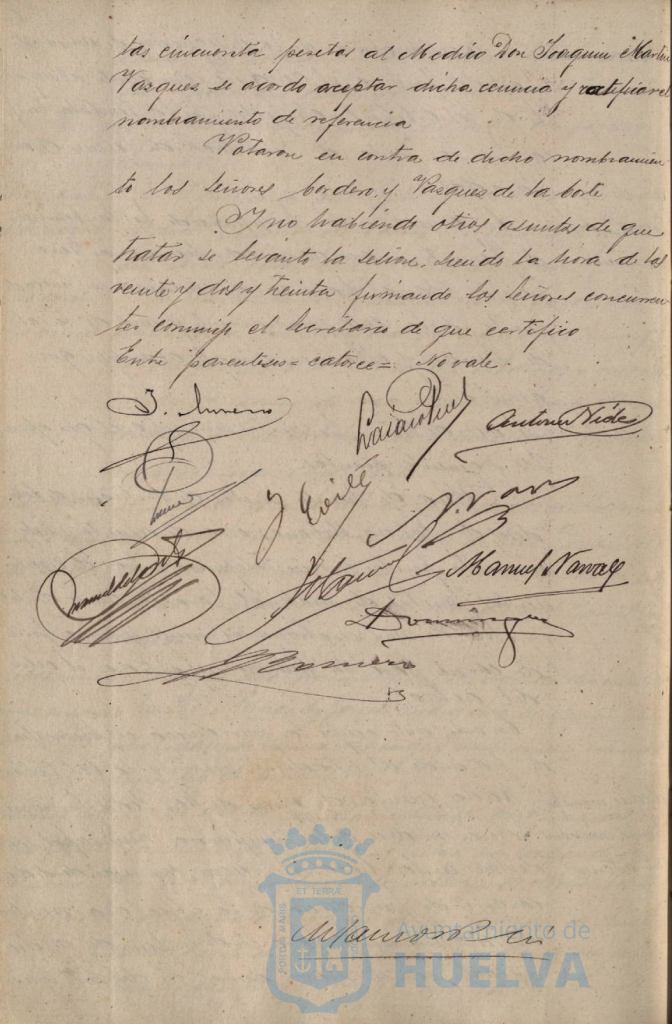 tas cincuenta pesetas al Medico Don Joaquin Martin
Vazques se acordo aceptar dicha renuncia y ratificar el
nombramiento de referencia
Votaron en contra de dicho nombramien-
to los señores Cordero y Vazques de la Corte
Y no habiendo otros asuntos de que
tratar se levanto la sesion, siendo la hora de las
veinte y dos y treinta firmando los señores concurren-
tes conmigo el Secretario de que certifico
Entre parentesis = catorce = No vale.
J. Moreno
Antonio
Manuel Navarro
Dominguez
Romero
PORTUS MARIS
ET TERRAE
Ayuntamiento de
HUELVA